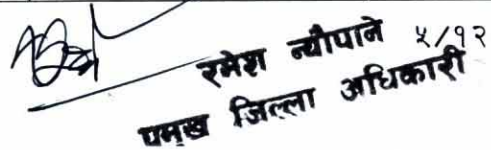 रमेश न्यौपाने ५/१२
प्रमुख जिल्ला अधिकारी